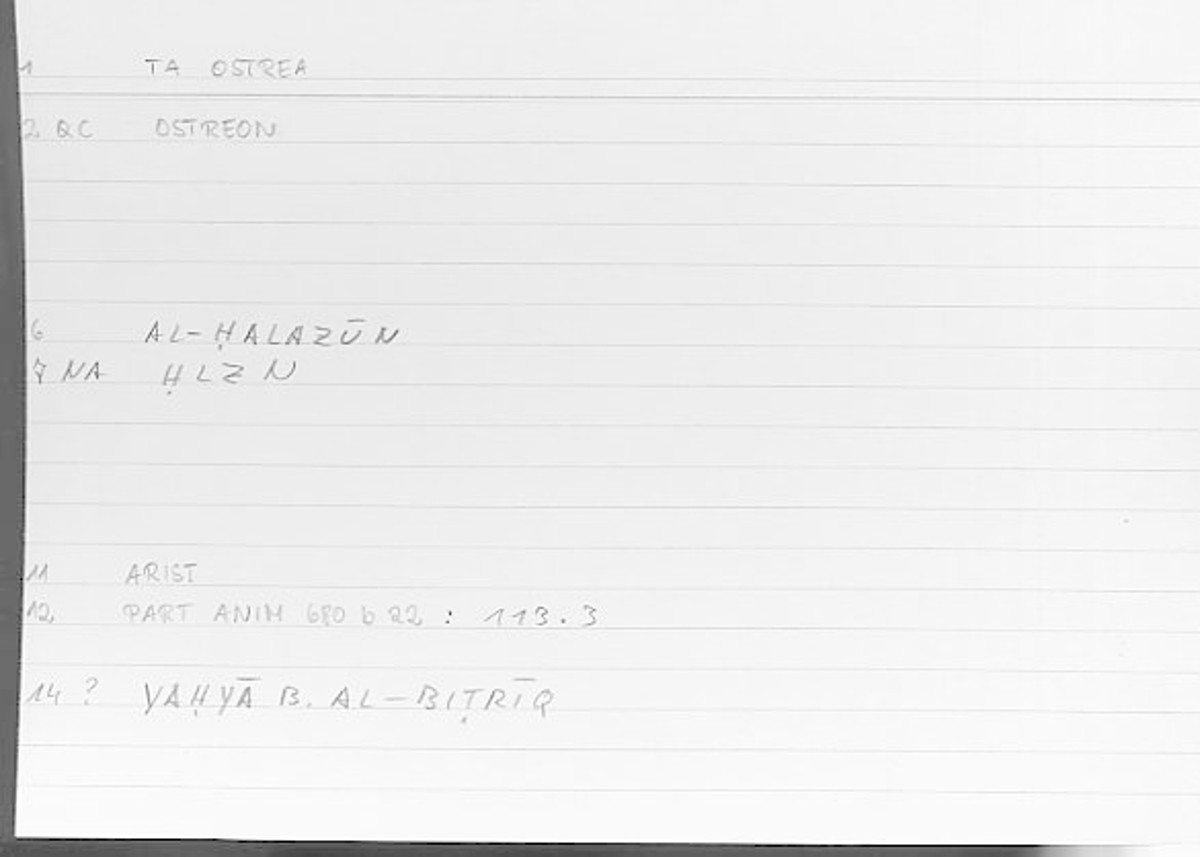 1 TA OSTREA
2 QC OSTREON
6 AL-ḤALAZŪN
7 NA ḤLZN
11 ARIST
12 PART ANIM 680 b 22 : 113.3
14 ? YAḤYĀ B. AL-BIṬRĪQ